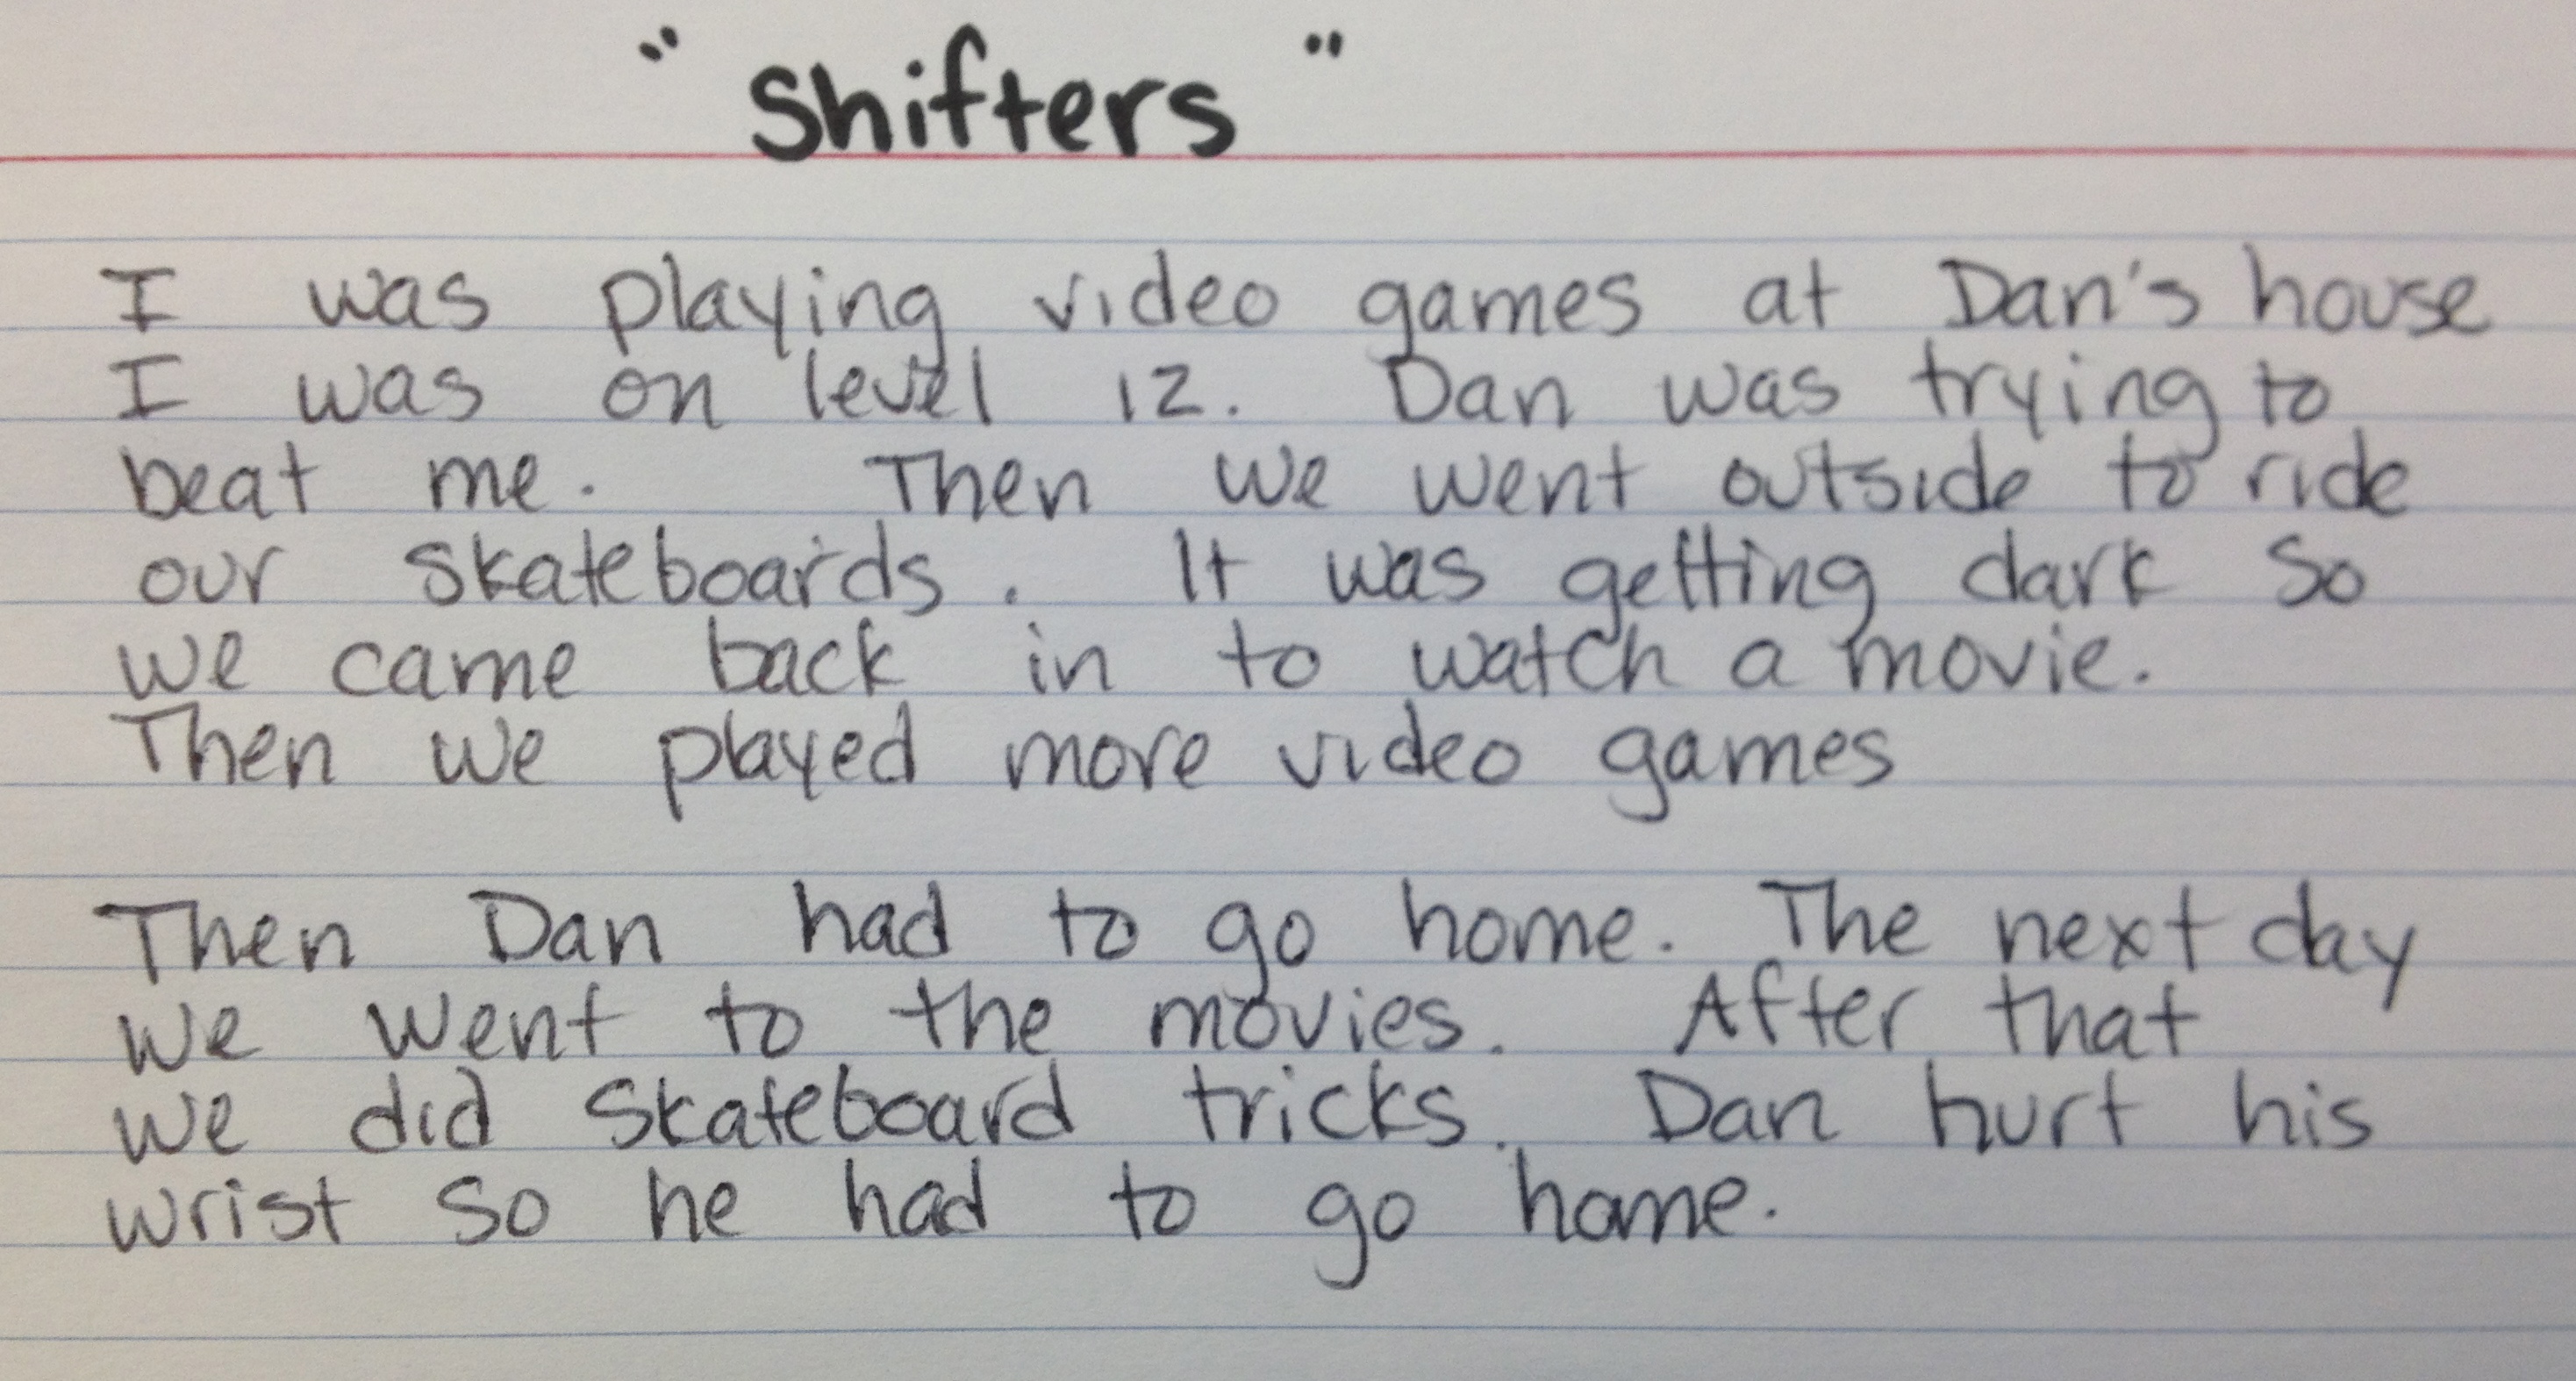 "Shifters"
I was playing video games at Dan's house
I was on level 12. Dan was trying to
beat me. Then we went outside to ride
our skateboards. It was getting dark so
we came back in to watch a movie.
Then we played more video games
Then Dan had to go home. The next day
we went to the movies. After that
we did skateboard tricks. Dan hurt his
wrist so he had to go home.